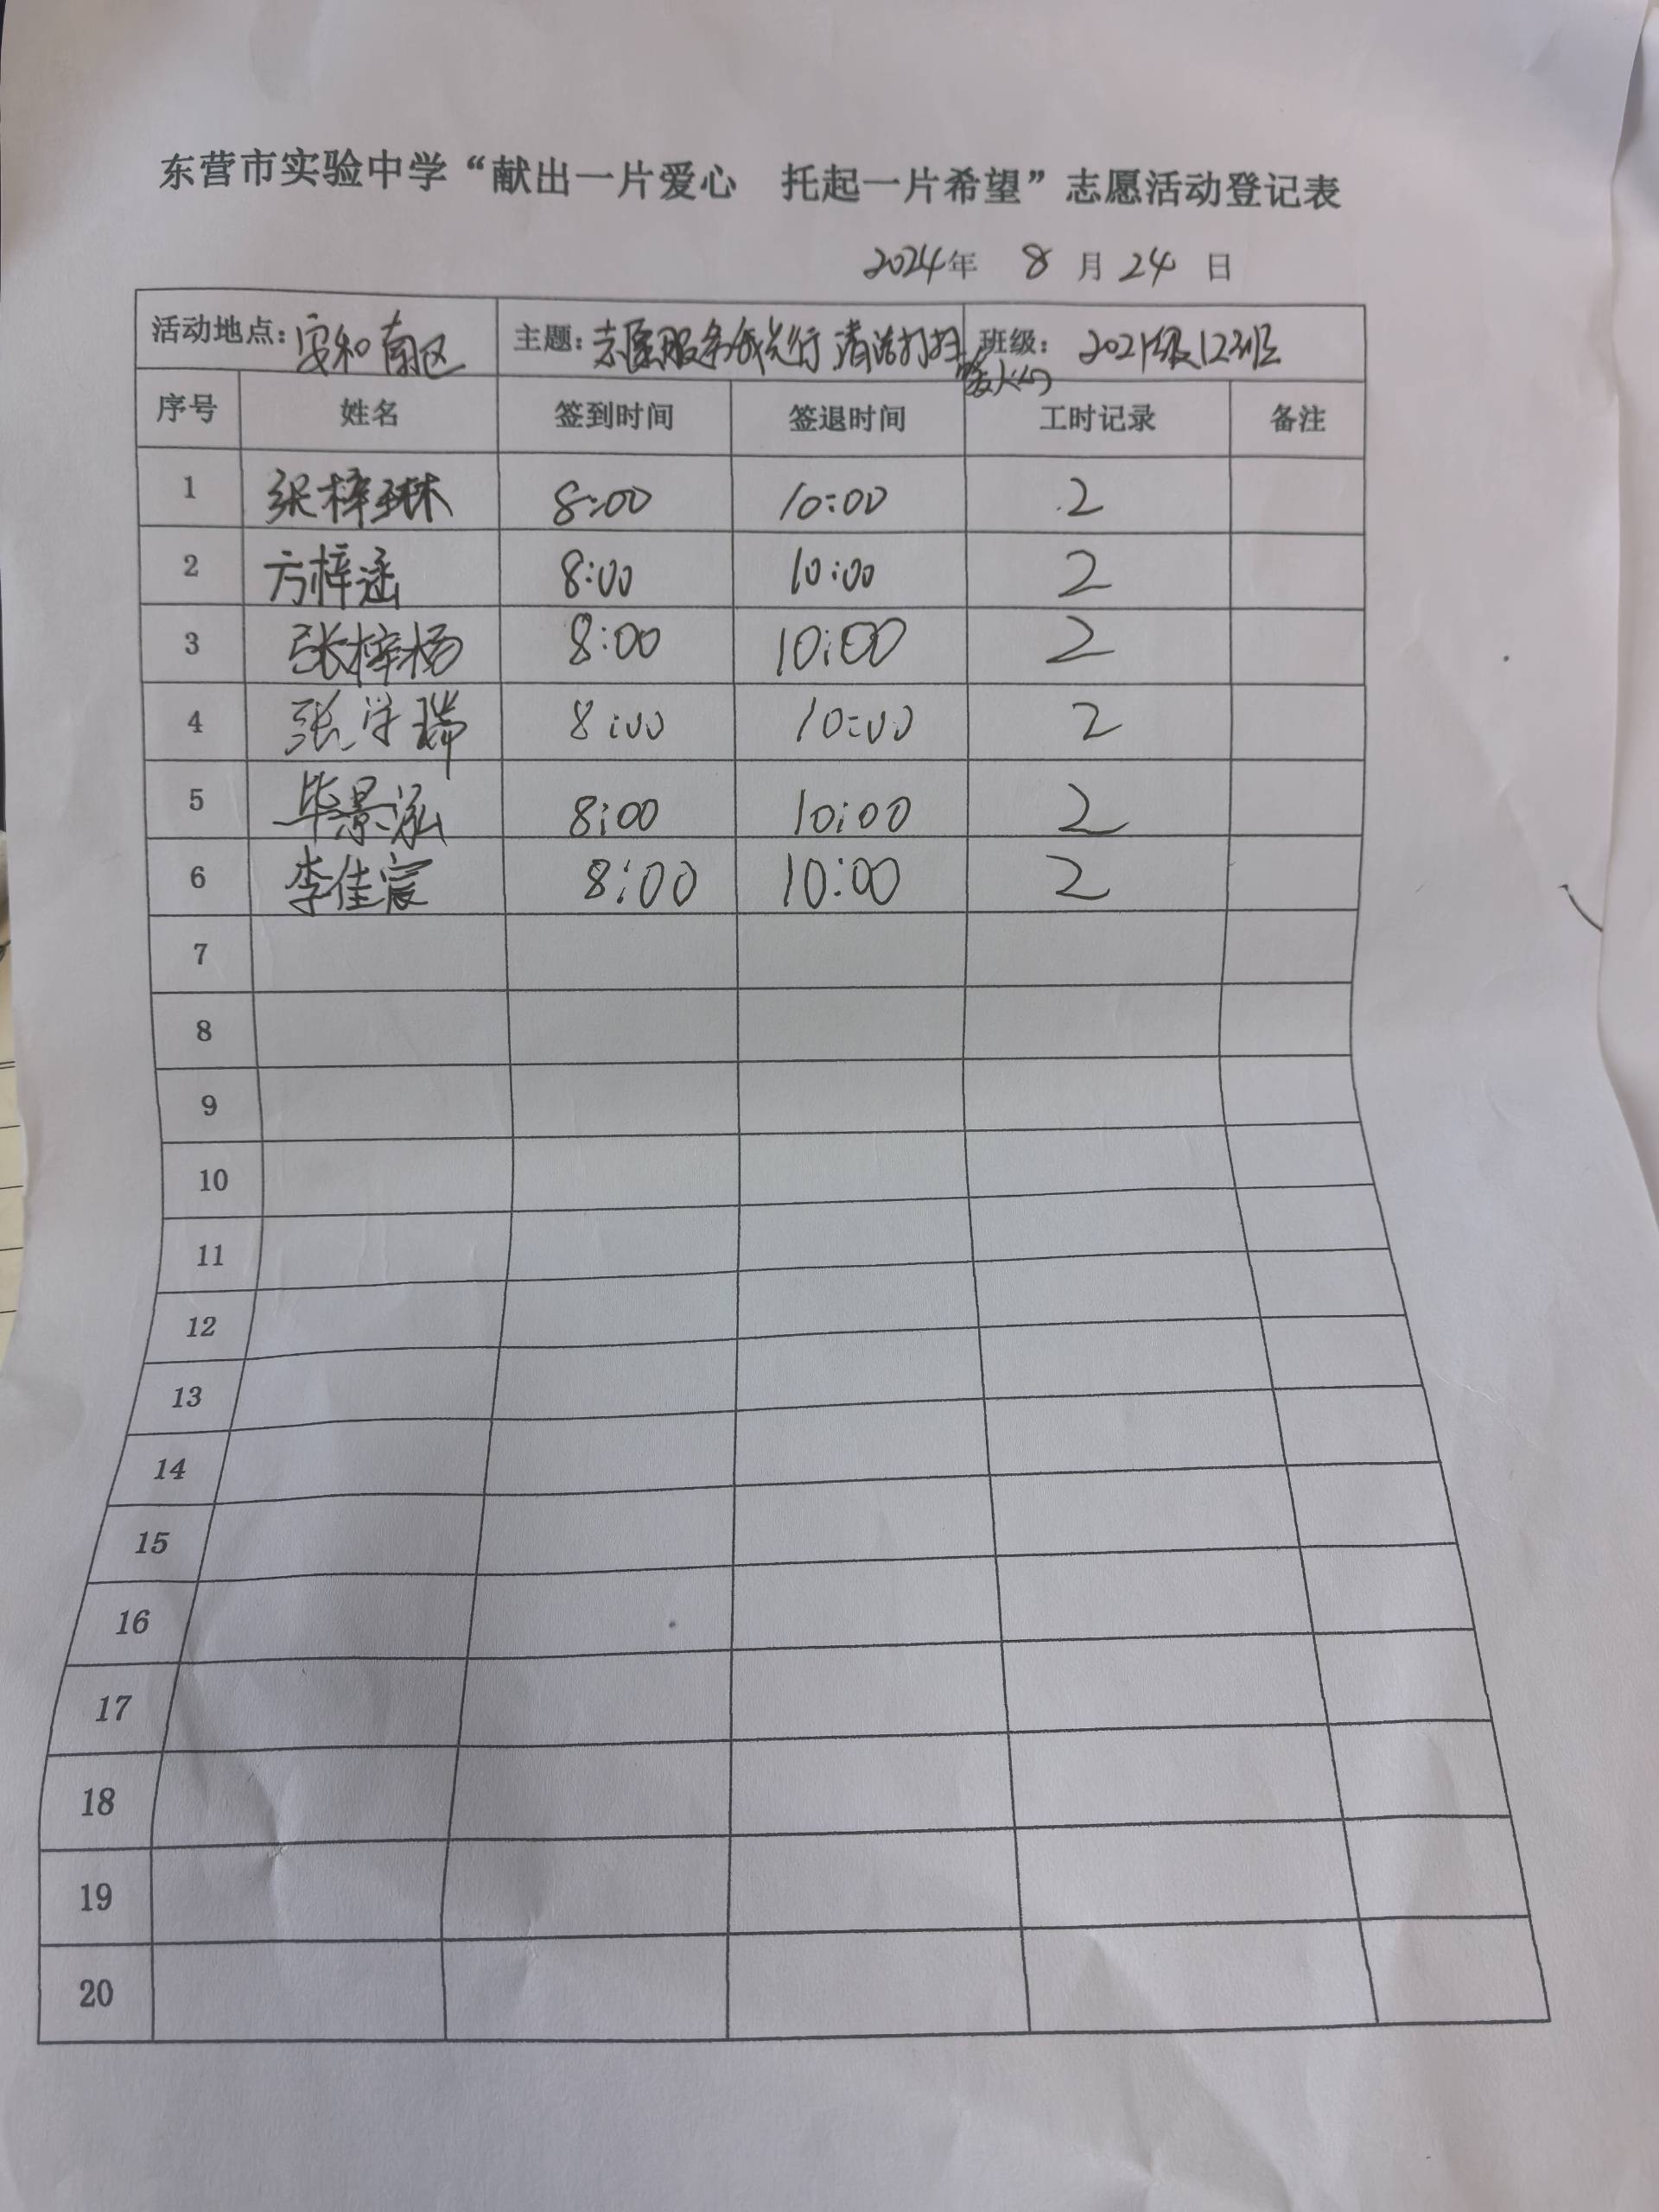 东营市实验中学“献出一片爱心 托起一片希望”志愿活动登记表
2024年 8 月 24 日
活动地点：安和南区 主题：志愿服务我先行 清洁打扫 暖人心 班级：2021级12班
序号 姓名 签到时间 签退时间 工时记录 备注
1 张梓琳 8:00 10:00 2
2 方梓涵 8:00 10:00 2
3 张梓杨 8:00 10:00 2
4 张学瑞 8:00 10:00 2
5 毕景泓 8:00 10:00 2
6 李佳宸 8:00 10:00 2
7
8
9
10
11
12
13
14
15
16
17
18
19
20